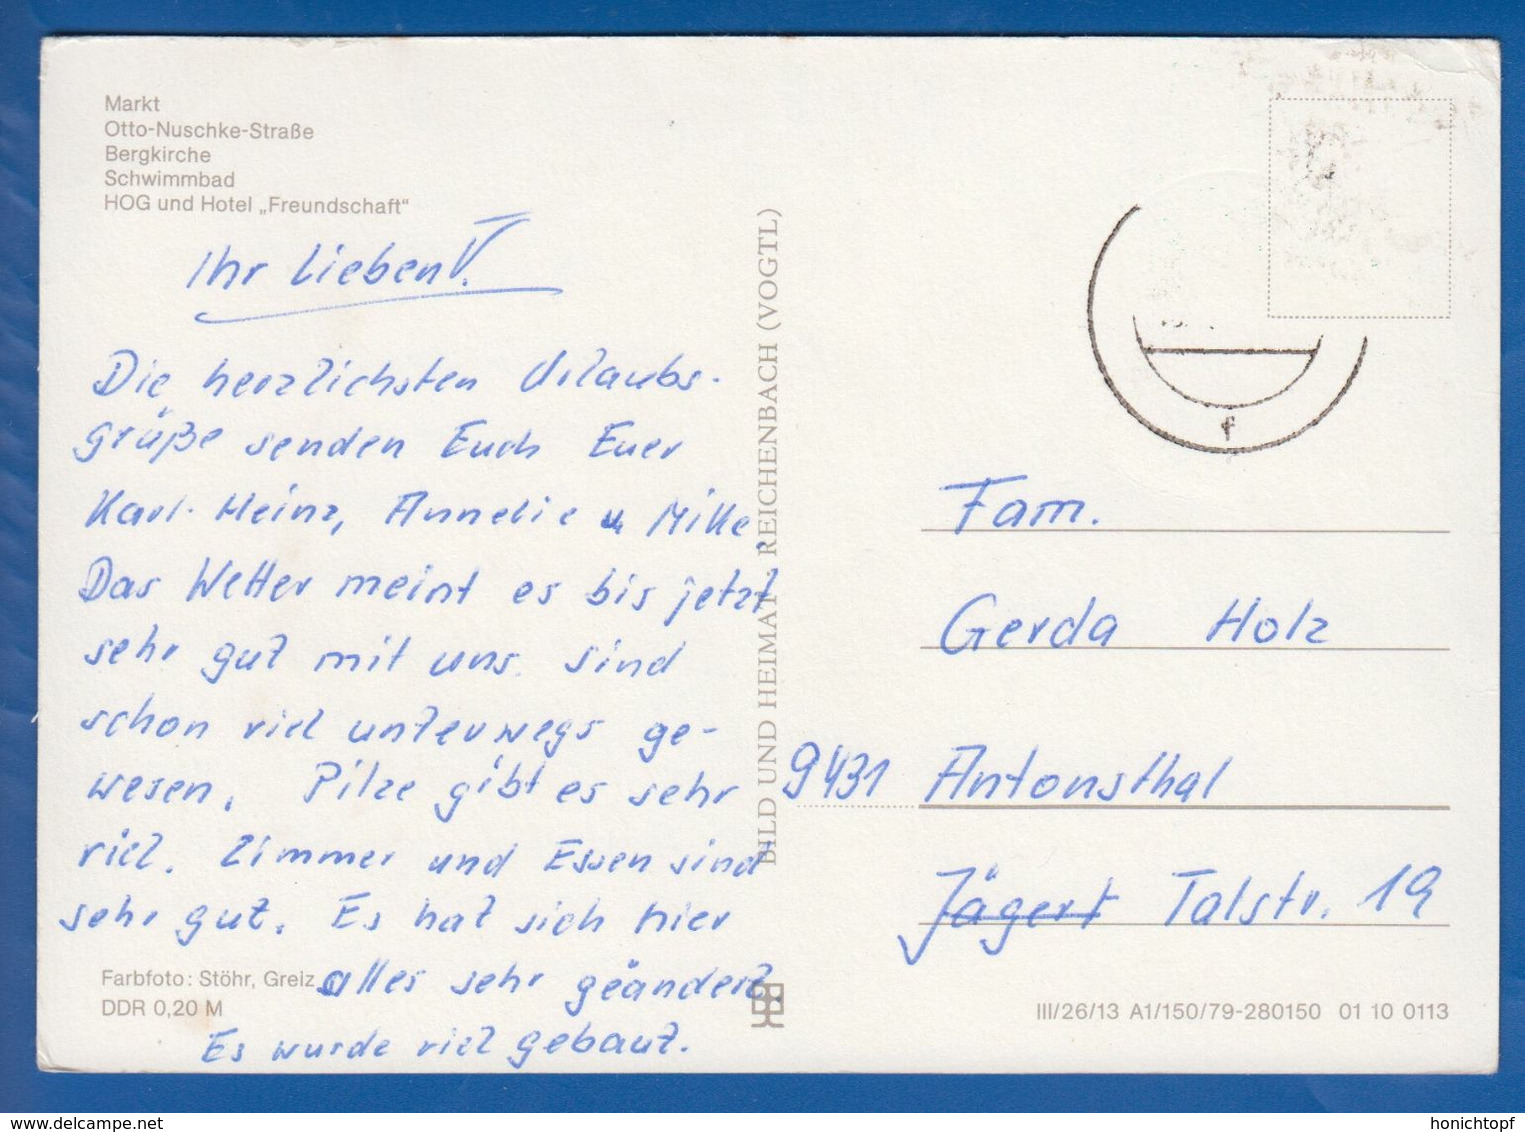 Markt
Otto-Nuschke-Straße
Bergkirche
Schwimmbad
HOG und Hotel „Freundschaft"
Ihr Lieben!
Die herzlichsten Urlaubs-
grüße senden Euch Euer
Karl-Heinz, Annelie u Mike.
Das Wetter meint es bis jetzt
sehr gut mit uns. Sind
schon viel unterwegs ge-
wesen. Pilze gibt es sehr
viel. Zimmer und Essen sind
sehr gut. Es hat sich hier
alles sehr geändert.
Es wurde viel gebaut.
Farbfoto: Stöhr, Greiz
DDR 0,20 M
BILD UND HEIMAT REICHENBACH (VOGTL)
f
Fam.
Gerda Holz
9431 Antonsthal
Jägert Talstr. 19
III/26/13 A1/150/79-280150 01 10 0113
delcampe.net
honichtopf